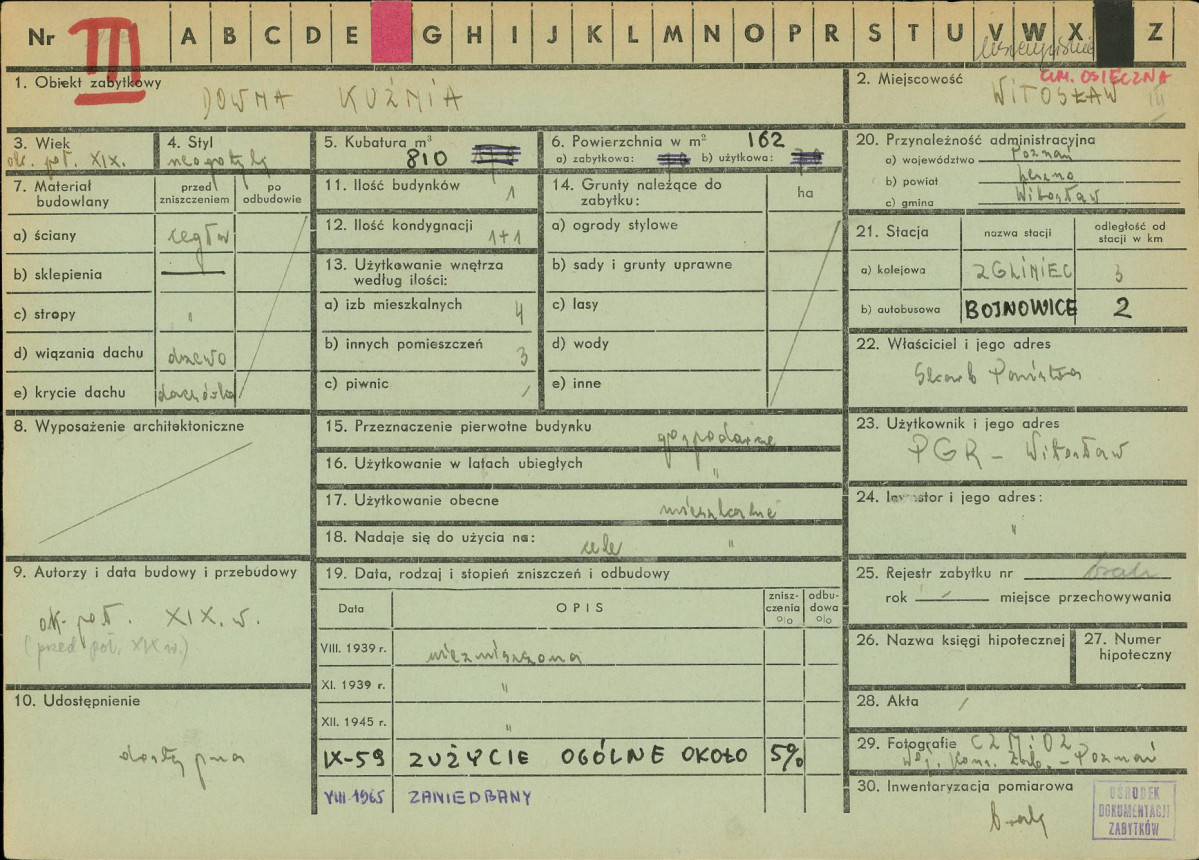 Nr III A B C D E G H I J K L M N O P R S T U V W X Z
1. Obiekt zabytkowy
DOWNA KUŹNIA
2. Miejscowość
GM. OSIECZNA
WITOSŁAW
3. Wiek
ok. poł. XIX.
4. Styl
neogotyk
5. Kubatura m³
810
6. Powierzchnia w m² 162
a) zabytkowa: b) użytkowa:
7. Materiał budowlany
przed zniszczeniem
po odbudowie
a) ściany cegła
b) sklepienia —
c) stropy "
d) wiązania dachu drzewo
e) krycie dachu dachówka
8. Wyposażenie architektoniczne
9. Autorzy i data budowy i przebudowy
ok. poł. XIX. w.
(przed poł. XIX w.)
10. Udostępnienie
dostępna
11. Ilość budynków 1
12. Ilość kondygnacji 1+1
13. Użytkowanie wnętrza
według ilości:
a) izb mieszkalnych 4
b) innych pomieszczeń 3
c) piwnic /
14. Grunty należące do
zabytku:
ha
a) ogrody stylowe
b) sady i grunty uprawne
c) lasy
d) wody
e) inne
15. Przeznaczenie pierwotne budynku gospodarze
16. Użytkowanie w latach ubiegłych "
17. Użytkowanie obecne mieszkalne
18. Nadaje się do użycia na: cele "
19. Data, rodzaj i stopień zniszczeń i odbudowy
Data
OPIS
znisz-
czenia
%
odbu-
dowa
%
VIII. 1939 r. niezniszczona
XI. 1939 r. "
XII. 1945 r. "
IX-59 ZUŻYCIE OGÓLNE OKOŁO 5%
VIII 1965 ZANIEDBANY
20. Przynależność administracyjna
a) województwo Poznań
b) powiat Leszno
c) gmina Witosław
21. Stacja
nazwa stacji
odległość od
stacji w km
a) kolejowa ZGLINIEC 3
b) autobusowa BOJNOWICE 2
22. Właściciel i jego adres
Skarb Państwa
23. Użytkownik i jego adres
PGR - Witosław
24. Inwestor i jego adres:
"
25. Rejestr zabytku nr brak
rok / miejsce przechowywania
26. Nazwa księgi hipotecznej
27. Numer
hipoteczny
28. Akta /
29. Fotografie CZMiOZ
Woj. Kons. Zab. - Poznań
30. Inwentaryzacja pomiarowa
brak
OŚRODEK
DOKUMENTACJI
ZABYTKÓW